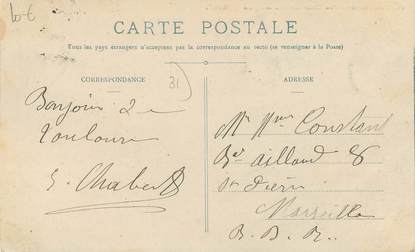 10-€
CARTE POSTALE
Tous les pays étrangers n'acceptent pas la correspondance au recto (se renseigner à la Poste)
CORRESPONDANCE
31
ADRESSE
Bonjour de
Toulouse
E. Chabert
Mr Mme Constant
Bd
St
Marseille
B. D. R.